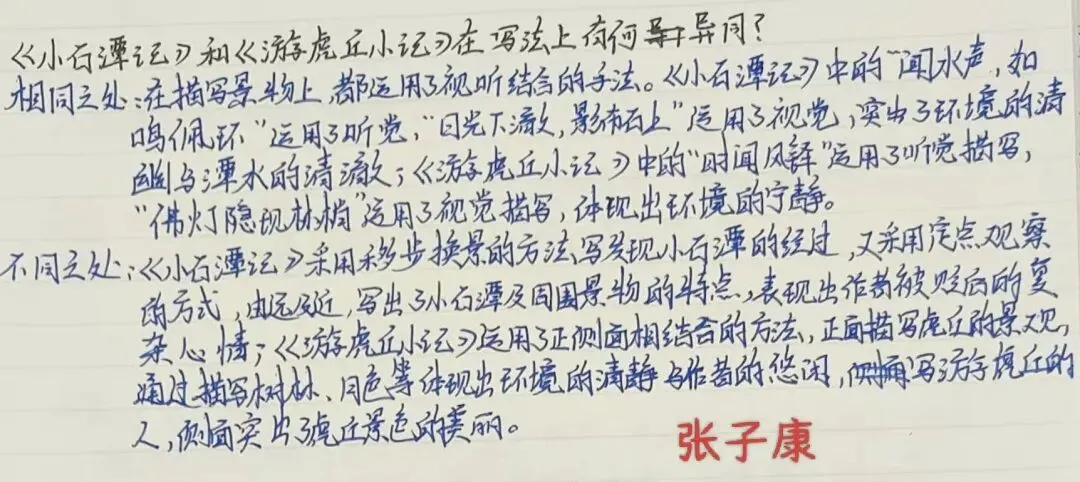 《小石潭记》和《游虎丘小记》在写法上有何异同?
相同之处:在描写景物上,都运用了视听结合的手法。《小石潭记》中的“闻水声,如
鸣佩环”运用了听觉,“日光下澈,影布石上”运用了视觉,突出了环境的清
幽与潭水的清澈;《游虎丘小记》中的“时闻风铎”运用了听觉描写,
“佛灯隐现林梢”运用了视觉描写,体现出环境的宁静。
不同之处:《小石潭记》采用移步换景的方法,写发现小石潭的经过,又采用定点观察
的方式,由远及近,写出了小石潭及周围景物的特点,表现出作者被贬后的复
杂心情;《游虎丘小记》运用了正侧面相结合的方法,正面描写虎丘的景观,
通过描写树林、月色等体现出环境的清静与作者的悠闲,侧面写游虎丘的
人,侧面突出了虎丘景色的美丽。
张子康